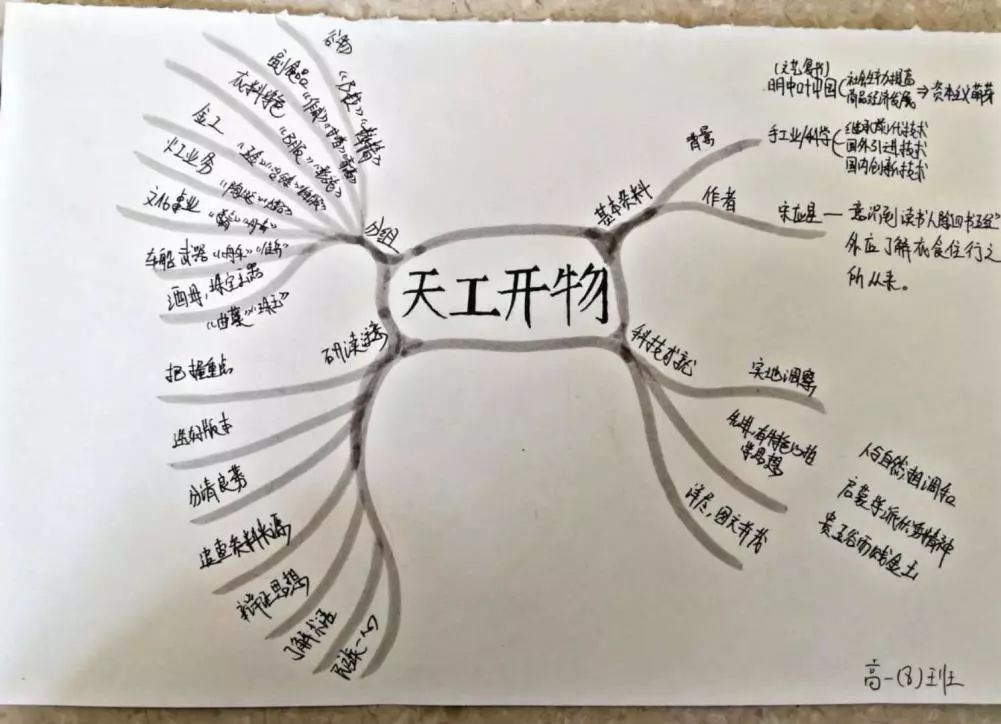 天工开物
基本资料
背景
(文艺复兴)
明中叶中国
社会生产力提高
商品经济发展
⇒资本主义萌芽
手工业/科学
继承前代技术
国外引进技术
国内创新技术
作者
宋应星—意识到读书人除四书五经
外应了解衣食住行之
所从来。
科技成就
实地调察
先进,有特色的哲
学思想
详尽,图文并茂
人与自然相调和
启蒙学派优秀精神
贵五谷而贱金玉
分组
副食品
衣料特色
金工
火工业务
文化事业
车船 武器《舟车》《佳兵》
酒母,珠宝玉器
《曲蘖》《珠玉》
研读
把握重点
选好版本
分清良莠
追查资料来源
辩证思想
了解术语
高一(8)班